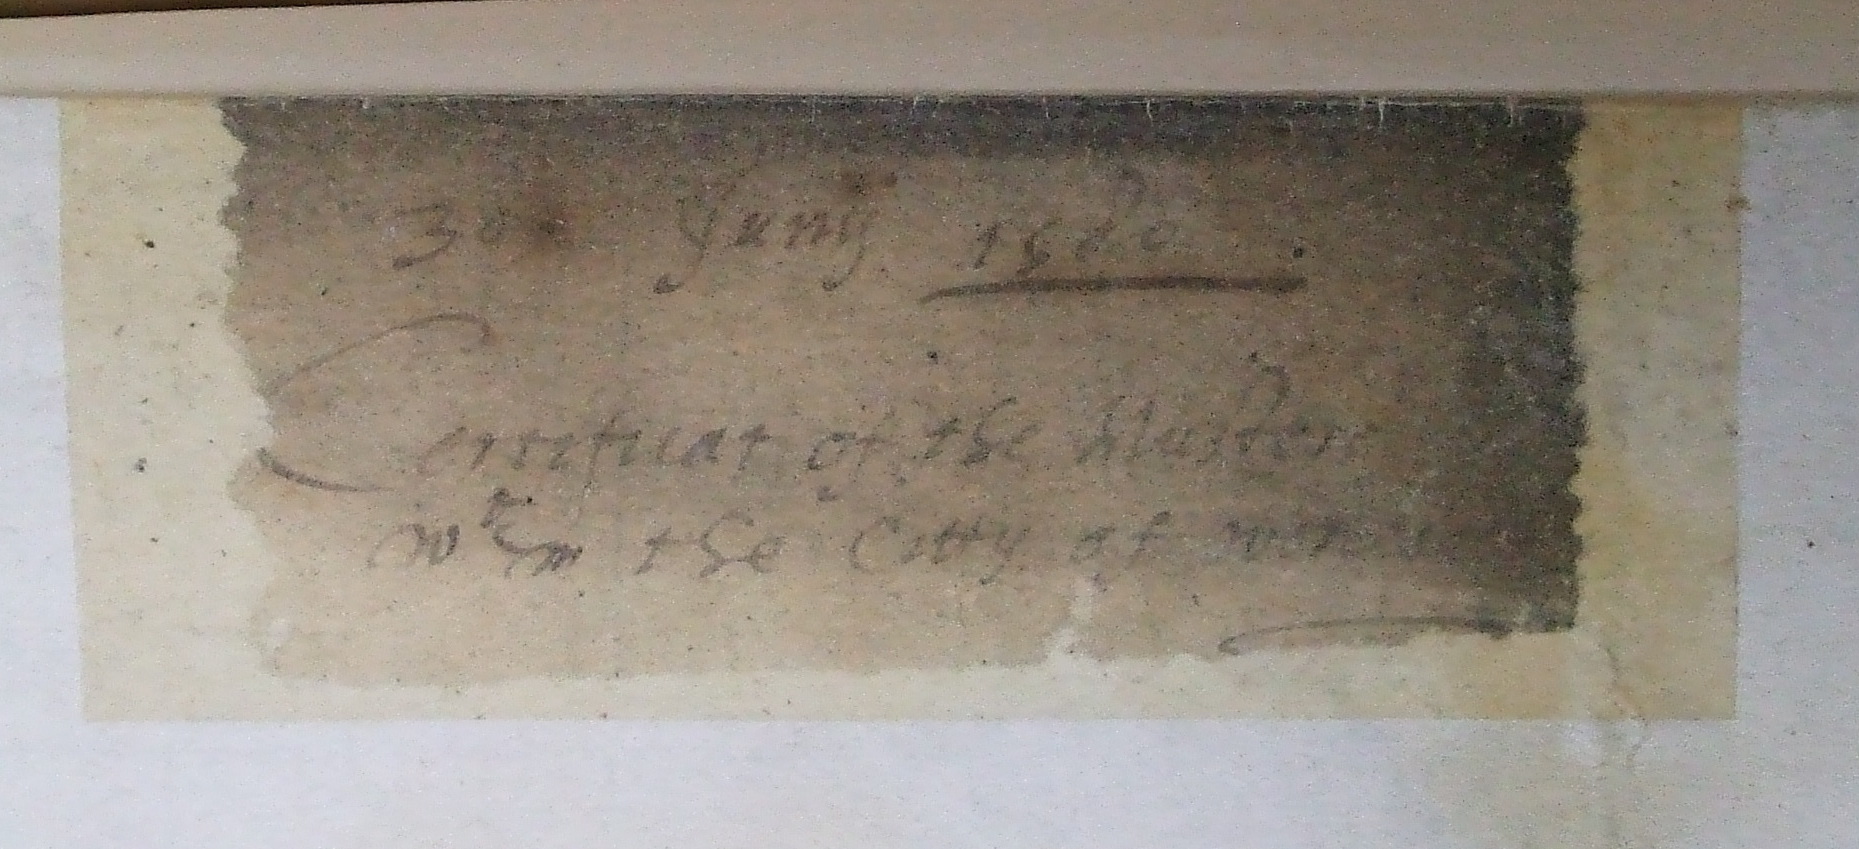 30 Junij 1580.
Certificat of the Musters
wthin the Citty of